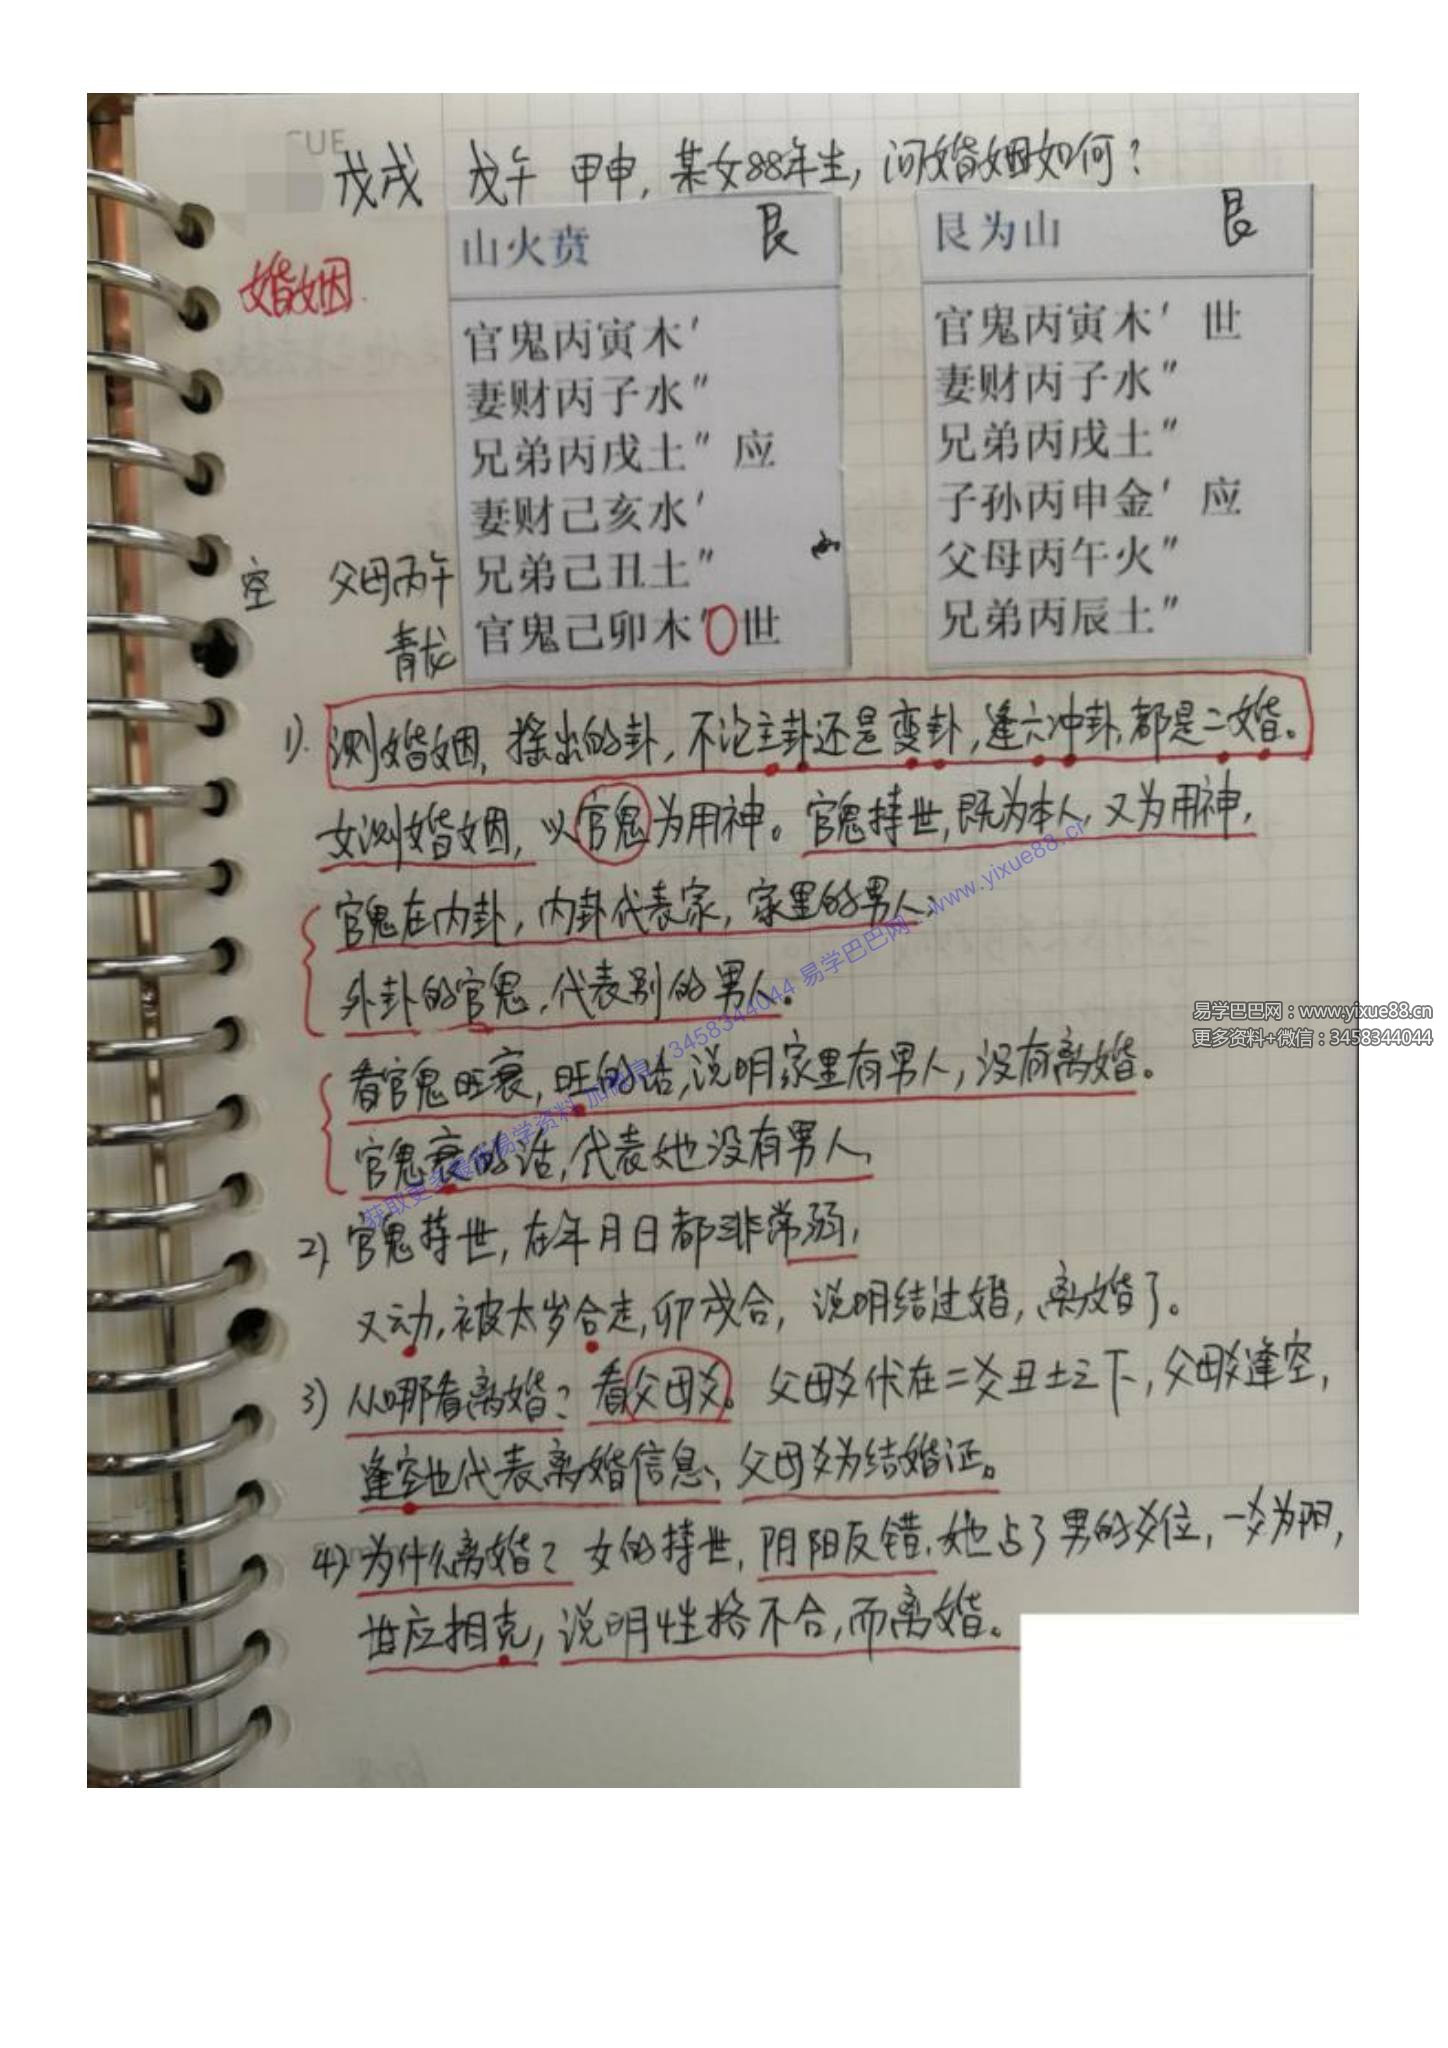 CUE
戊戌 戊午 甲申, 某女88年生, 问婚姻如何?
婚姻.
山火贲 艮
官鬼丙寅木′
妻财丙子水″
兄弟丙戌土″ 应
妻财己亥水′
空 父母丙午 兄弟己丑土″
青龙 官鬼己卯木′○世
艮为山 艮
官鬼丙寅木′ 世
妻财丙子水″
兄弟丙戌土″
子孙丙申金′ 应
父母丙午火″
兄弟丙辰土″
1). 测婚姻, 摇出的卦, 不论主卦还是变卦, 逢六冲卦, 都是二婚。
女测婚姻, 以官鬼为用神。官鬼持世, 既为本人, 又为用神,
官鬼在内卦, 内卦代表家, 家里的男人;
外卦的官鬼, 代表别的男人。
看官鬼旺衰, 旺的话, 说明家里有男人, 没有离婚。
官鬼衰的话, 代表她没有男人,
2) 官鬼持世, 在年月日都非常弱,
又动, 被太岁合走, 卯戌合, 说明结过婚, 离婚了。
3) 从哪看离婚? 看父母爻。父母爻伏在二爻丑土之下, 父母爻逢空,
逢空也代表离婚信息, 父母爻为结婚证。
4) 为什么离婚? 女的持世, 阴阳反错, 她占了男的爻位, 一爻为阳,
世应相克, 说明性格不合, 而离婚。
易学巴巴网：www.yixue88.cn
更多资料+微信：3458344044
3458344044 易学巴巴网：www.yixue88.cn